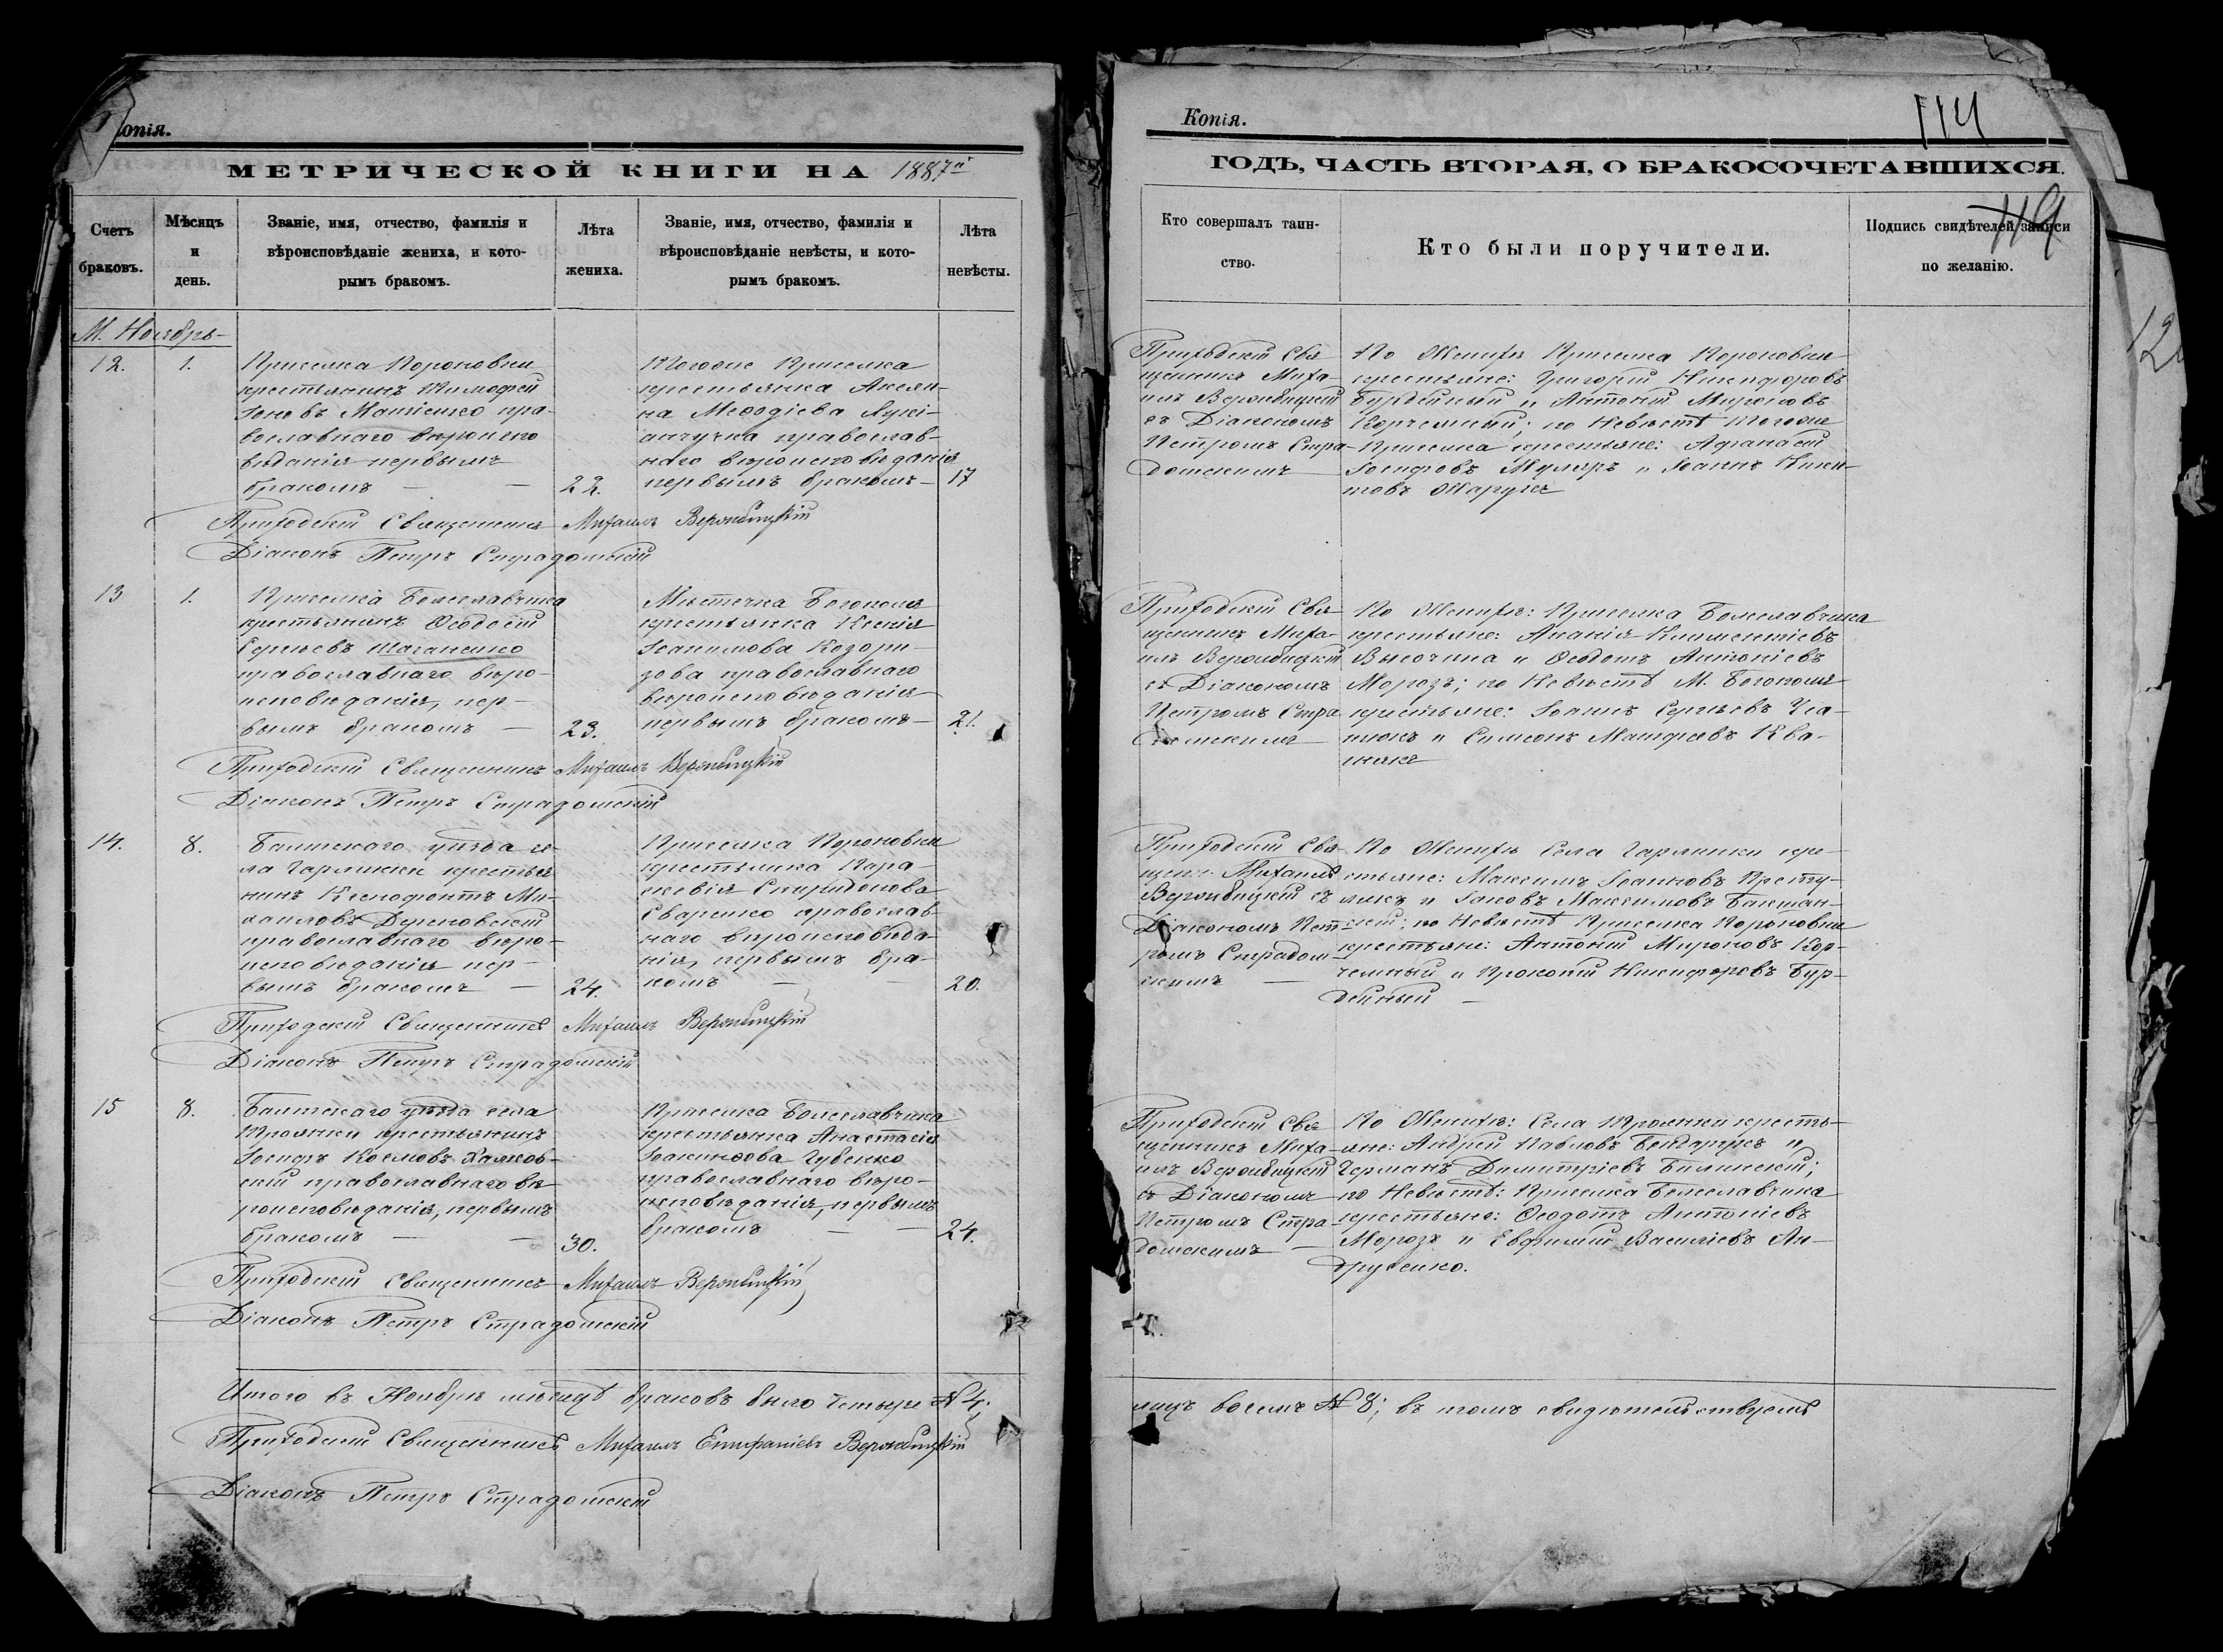 Копія.
МЕТРИЧЕСКОЙ КНИГИ НА 1887й
Счетъ браковъ.
Мѣсяцъ и день.
Званіе, имя, отчество, фамилія и
вѣроисповѣданіе жениха, и кото-
рымъ бракомъ.
Лѣта жениха.
Званіе, имя, отчество, фамилія и
вѣроисповѣданіе невѣсты, и кото-
рымъ бракомъ.
Лѣта невѣсты.
М. Ноябрь
12.
1.
Приселка Короновки
крестьянинъ Тимофей
Іоновъ Матіенко пра-
вославнаго вѣроиспо
вѣданія первымъ
бракомъ
22.
Тогоже Приселка
крестьянка Акели-
на Меѳодіева Лукі-
анчучка православ-
наго вѣроисповѣданія
первымъ бракомъ
17
Приходскій Священникъ Михаилъ Вербицкій
Діаконъ Петръ Страдомскій
13
1.
Приселка Болеславчика
крестьянинъ Ѳеодосій
Сергѣевъ Шаганенко
православнаго вѣро-
исповѣданія, пер-
вымъ бракомъ
23.
Мѣстечка Богополя
крестьянка Ксенія
Іоакимова Козори-
зова православнаго
вѣроисповѣданія
первымъ бракомъ
21.
Приходскій Священникъ Михаилъ
Діаконъ Петръ Страдомскій
14.
8.
Балтскаго уѣзда се-
ла крестья
нинъ Ксенофонтъ Ми-
хаиловъ
православнаго вѣро-
исповѣданія пер-
вымъ бракомъ
24.
Приселка Короновки
крестьянка Пара-
скевія Спиридонова
Сваренко православ-
наго вѣроисповѣда-
нія, первымъ бра-
комъ
20.
Приходскій Священникъ Михаилъ
Діаконъ Петръ Страдомскій
15
8.
Балтскаго уѣзда села
Троянки крестьянинъ
Іосифъ Космовъ Халков-
скій православнаго вѣ
роисповѣданія, первымъ
бракомъ
30.
Приселка Болеславчика
крестьянка Анастасія
Іоакимова Губенко
православнаго вѣро-
исповѣданія, первымъ
бракомъ
24.
Приходскій Священникъ Михаилъ
Діаконъ Петръ Страдомскій
Итого въ Ноябрѣ мѣсяцѣ браковъ было четыре № 4;
Приходскій Священникъ Михаилъ Епифаніевъ
Діаконъ Петръ Страдомскій
Копія.
114
ГОДЪ, ЧАСТЬ ВТОРАЯ, О БРАКОСОЧЕТАВШИХСЯ.
Кто совершалъ таин-
ство.
Кто были поручители.
Подпись свидѣтелей записи
по желанію.
Приходскій Свя
щенникъ Миха-
илъ
съ Діакономъ
Петромъ Стра-
домскимъ
По Женихѣ Приселка Короновки
крестьяне: Григорій Никифоровъ
Бурдейный и Антоній Мироновъ
Корчемный; по Невѣстѣ Тогоже
Приселка крестьяне: Афанасій
Іосифовъ Муляръ и Іоаннъ Ники-
товъ
Приходскій Свя
щенникъ Миха-
илъ
съ Діакономъ
Петромъ Стра
домскимъ
По Женихѣ: Приселка Болеславчика
крестьяне: Ананія Климентіевъ
Высочина и Ѳеодотъ Антоніевъ
Морозъ; по Невѣстѣ М. Богополя
крестьяне: Іоаннъ Сергѣевъ
и Симеонъ Матфеевъ
Приходскій Свя-
щен. Михаилъ
съ
Діакономъ Пет-
ромъ Страдом-
скимъ
По Женихѣ Села кре-
стьяне: Максимъ Іоанновъ
и Іаковъ Максимовъ
по Невѣстѣ Приселка Короновки
крестьяне: Антоній Мироновъ Кор-
чемный и Прокопій Никифоровъ Бур-
дейный
Приходскій Свя
щенникъ Миха-
илъ
съ Діакономъ
Петромъ Стра-
домскимъ
По Женихѣ: Села Троянки кресть-
яне: Андрей Павловъ Бондарукъ и
Германъ Димитріевъ Билинскій;
по Невѣстѣ: Приселка Болеславчика
крестьяне: Ѳеодотъ Антоніевъ
Морозъ и Евфимій Василіевъ Ан-
друсенко.
лицъ восемь № 8; въ томъ свидѣтельствуемъ